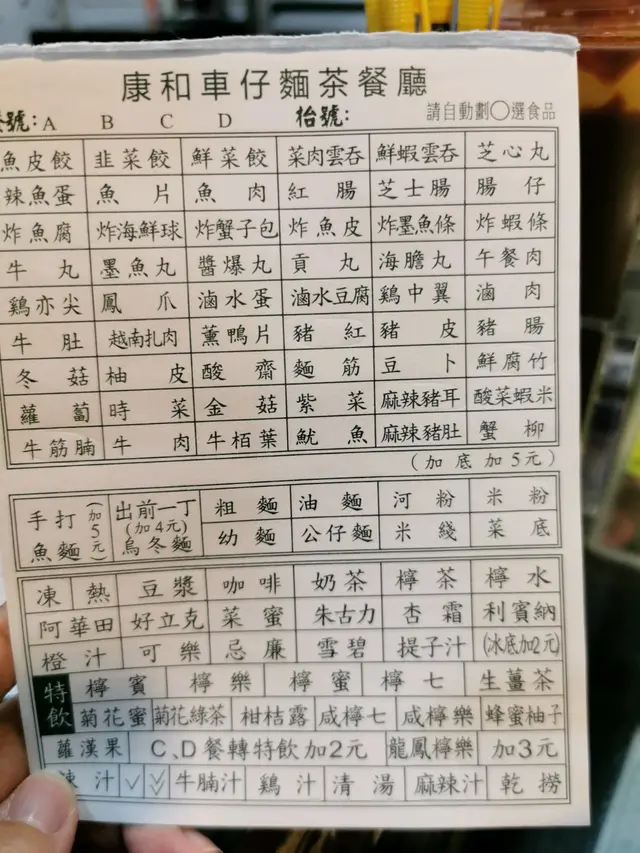 康和車仔麵茶餐廳
號: A B C D 枱號: 請自動劃○選食品
魚皮餃 韭菜餃 鮮菜餃 菜肉雲吞 鮮蝦雲吞 芝心丸
辣魚蛋 魚片 魚肉 紅腸 芝士腸 腸仔
炸魚腐 炸海鮮球 炸蟹子包 炸魚皮 炸墨魚條 炸蝦條
牛丸 墨魚丸 醬爆丸 貢丸 海膽丸 午餐肉
鷄亦尖 鳳爪 滷水蛋 滷水豆腐 鷄中翼 滷肉
牛肚 越南扎肉 薰鴨片 豬紅 豬皮 豬腸
冬菇 柚皮 酸齋 麵筋 豆卜 鮮腐竹
蘿蔔 時菜 金菇 紫菜 麻辣豬耳 酸菜蝦米
牛筋腩 牛肉 牛栢葉 魷魚 麻辣豬肚 蟹柳
(加底加5元)
手打魚麵(加5元) 出前一丁(加4元)烏冬麵 粗麵 油麵 河粉 米粉
幼麵 公仔麵 米綫 菜底
凍 熱 豆漿 咖啡 奶茶 檸茶 檸水
阿華田 好立克 菜蜜 朱古力 杏霜 利賓納
橙汁 可樂 忌廉 雪碧 提子汁 (冰底加2元)
特飲 檸賓 檸樂 檸蜜 檸七 生薑茶
菊花蜜 菊花綠茶 柑桔露 咸檸七 咸檸樂 蜂蜜柚子
蘿漢果 C、D餐轉特飲加2元 龍鳳檸樂 加3元
汁 ✓ 牛腩汁 鷄汁 清湯 麻辣汁 乾撈